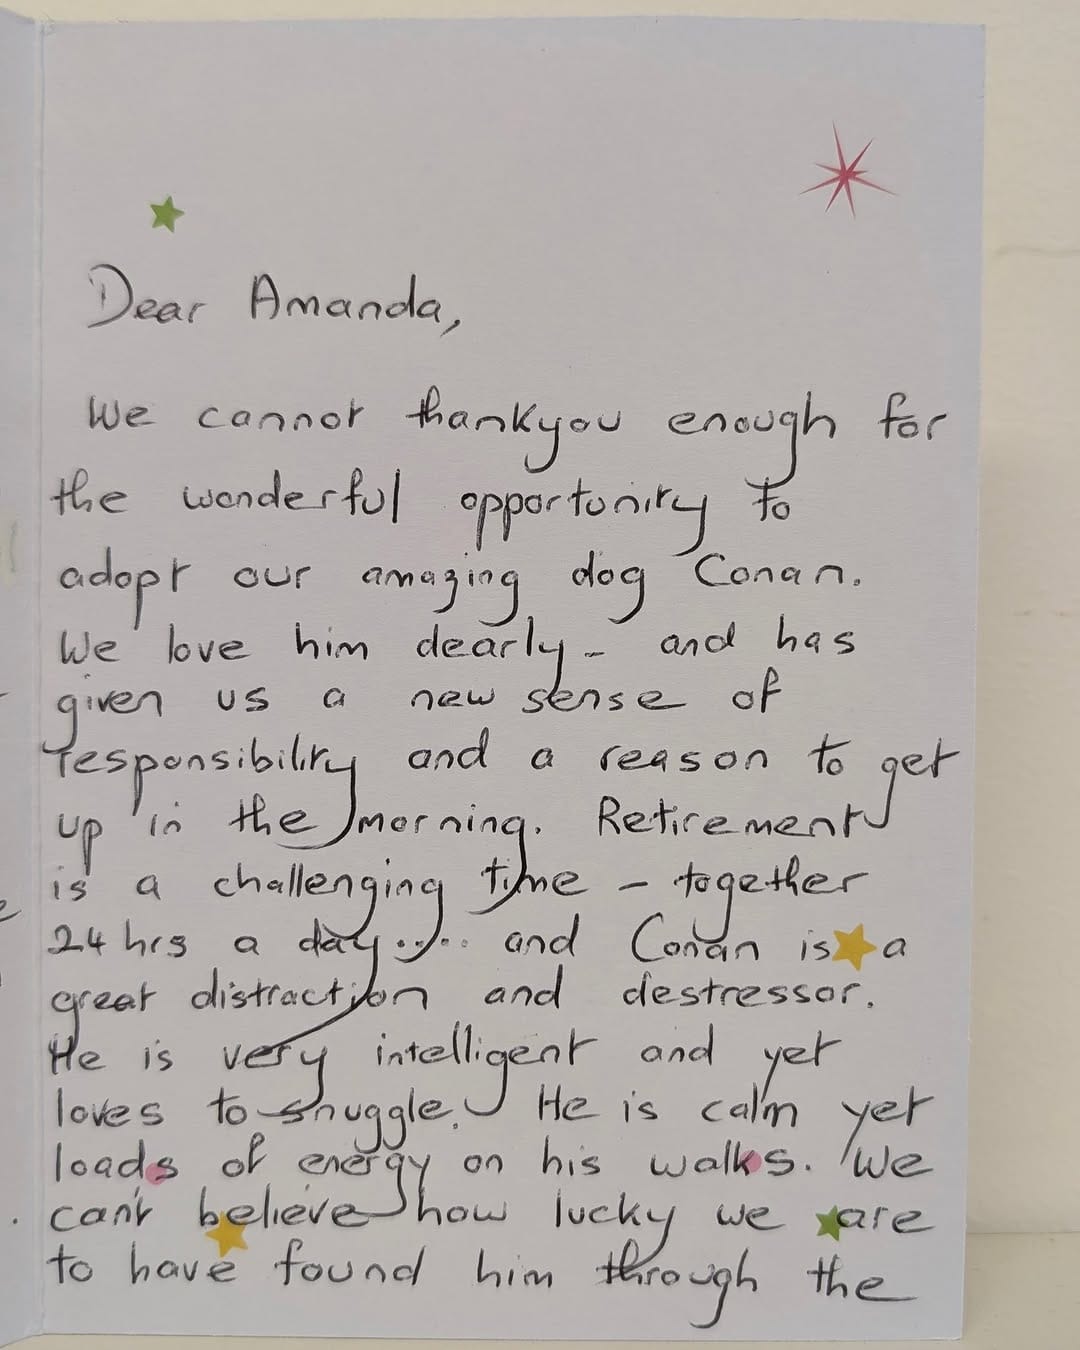 Dear Amanda,
We cannot thankyou enough for
the wonderful opportunity to
adopt our amazing dog Conan.
We love him dearly - and has
given us a new sense of
responsibility and a reason to get
up in the morning. Retirement
is a challenging time - together
24 hrs a day..... and Conan is a
great distraction and destressor.
He is very intelligent and yet
loves to snuggle. He is calm yet
loads of energy on his walks. We
can't believe how lucky we are
to have found him through the